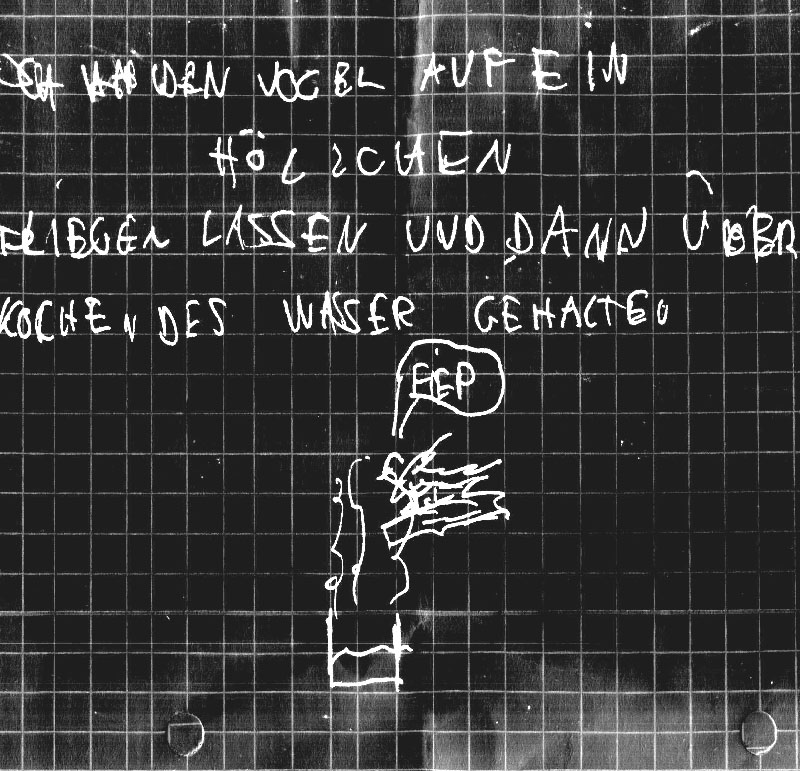 ICH HAB DEN VOGEL AUF EIN
HÖLZCHEN
FLIEGEN LASSEN UND DANN ÜBER
KOCHENDES WASSER GEHALTEN
EEP